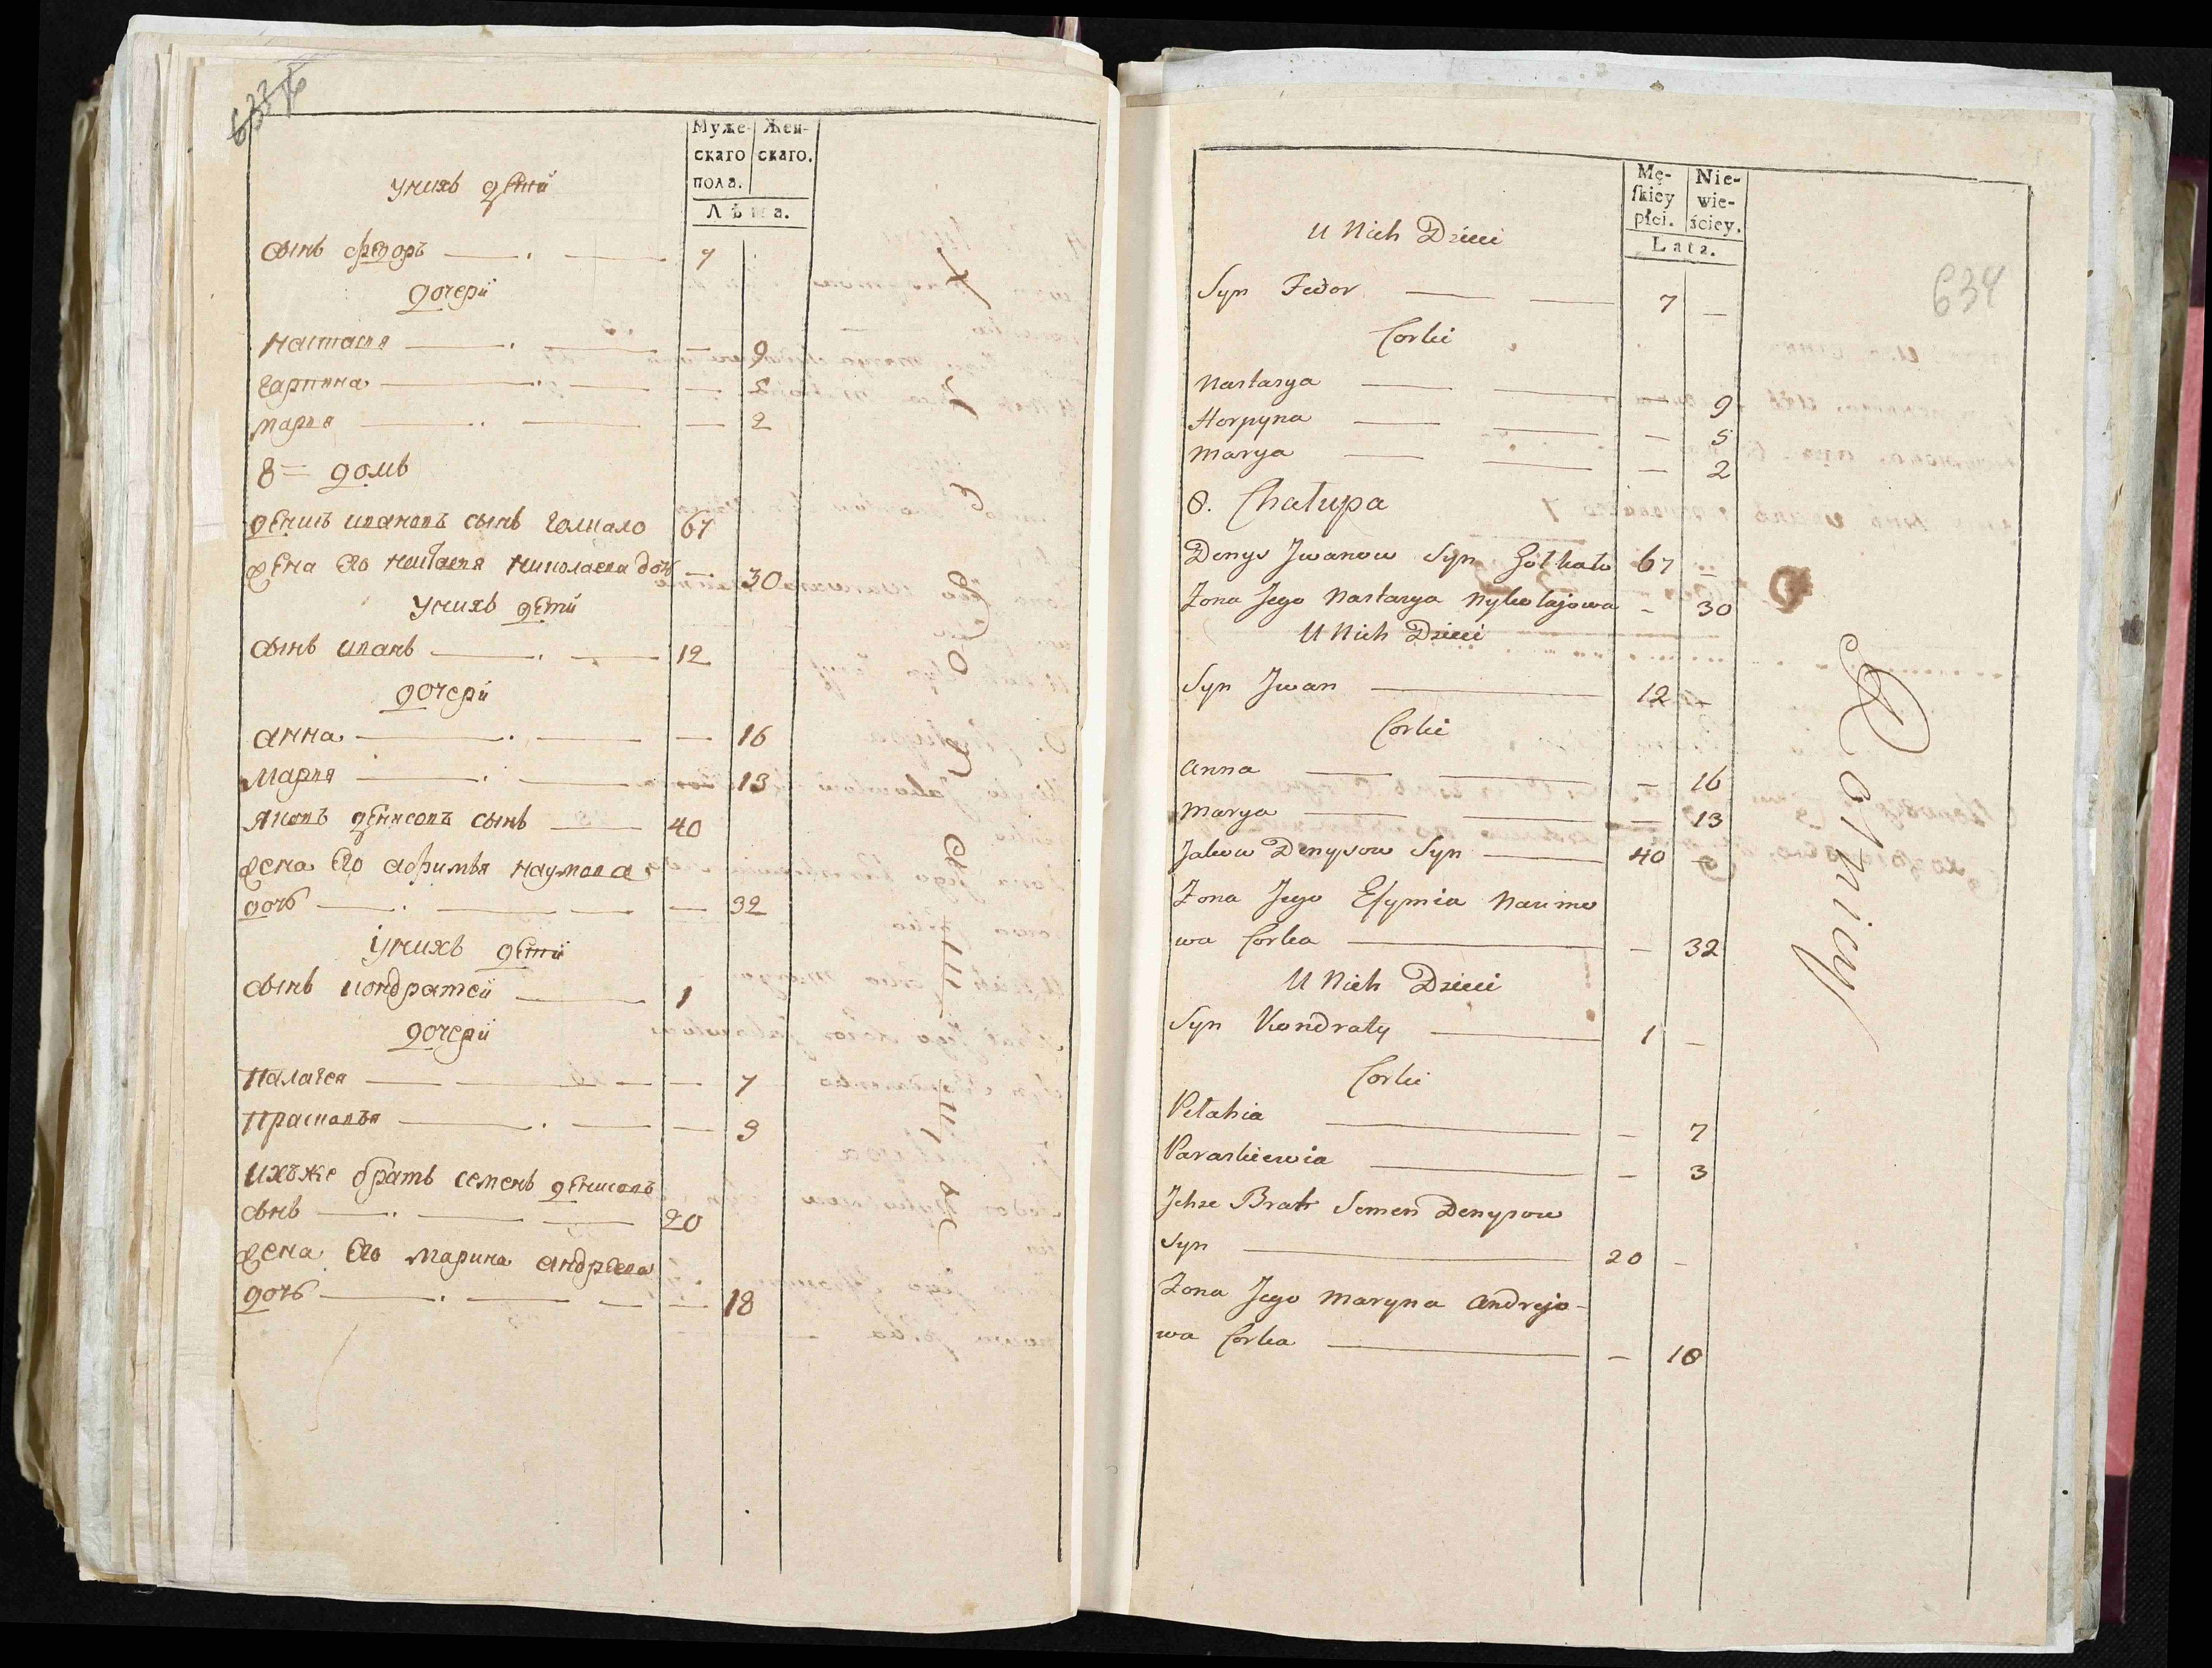 Муже- Жен-
скаго скаго.
пола.
Лѣта.
унихъ дѣти
сынъ федоръ 7
дочери
настасия — 9
гарпина — 5
мария — 2
8 = домъ
денисъ ивановъ сынъ голкало 67
жена его настасия николаева дочь — 30
унихъ дѣти
сынъ иванъ 12
дочери
анна — 16
мария — 13
яковъ денисовъ сынъ 40
жена его афимья наумова
дочь — 32
унихъ дѣти
сынъ кондратей 1
дочери
палагея — 7
прасковья — 3
ихъже братъ семенъ денисовъ
сынъ 20
жена его марина андреева
дочь — 18
634
Mę- Nie-
skiey wie-
płci. ściey.
Lata.
U Nich Dzieci
Syn Fedor 7 —
Corki
Nastasya — 9
Horpyna — 5
Marya — 2
8. Chałupa
Denys Jwanow Syn Gołkało 67 —
Żona Jego Nastasya Nykołajowa — 30
U Nich Dzieci
Syn Jwan 12 —
Corki
Anna — 16
Marya — 13
Jakow Denysow Syn 40 —
Żona Jego Efymia Naumo
wa Corka — 32
U Nich Dzieci
Syn Kondraty 1 —
Corki
Pełahia — 7
Paraskiewia — 3
Jchze Brat Semen Denysow
Syn 20 —
Żona Jego Maryna Andrejo-
wa Corka — 18
Rotnicy